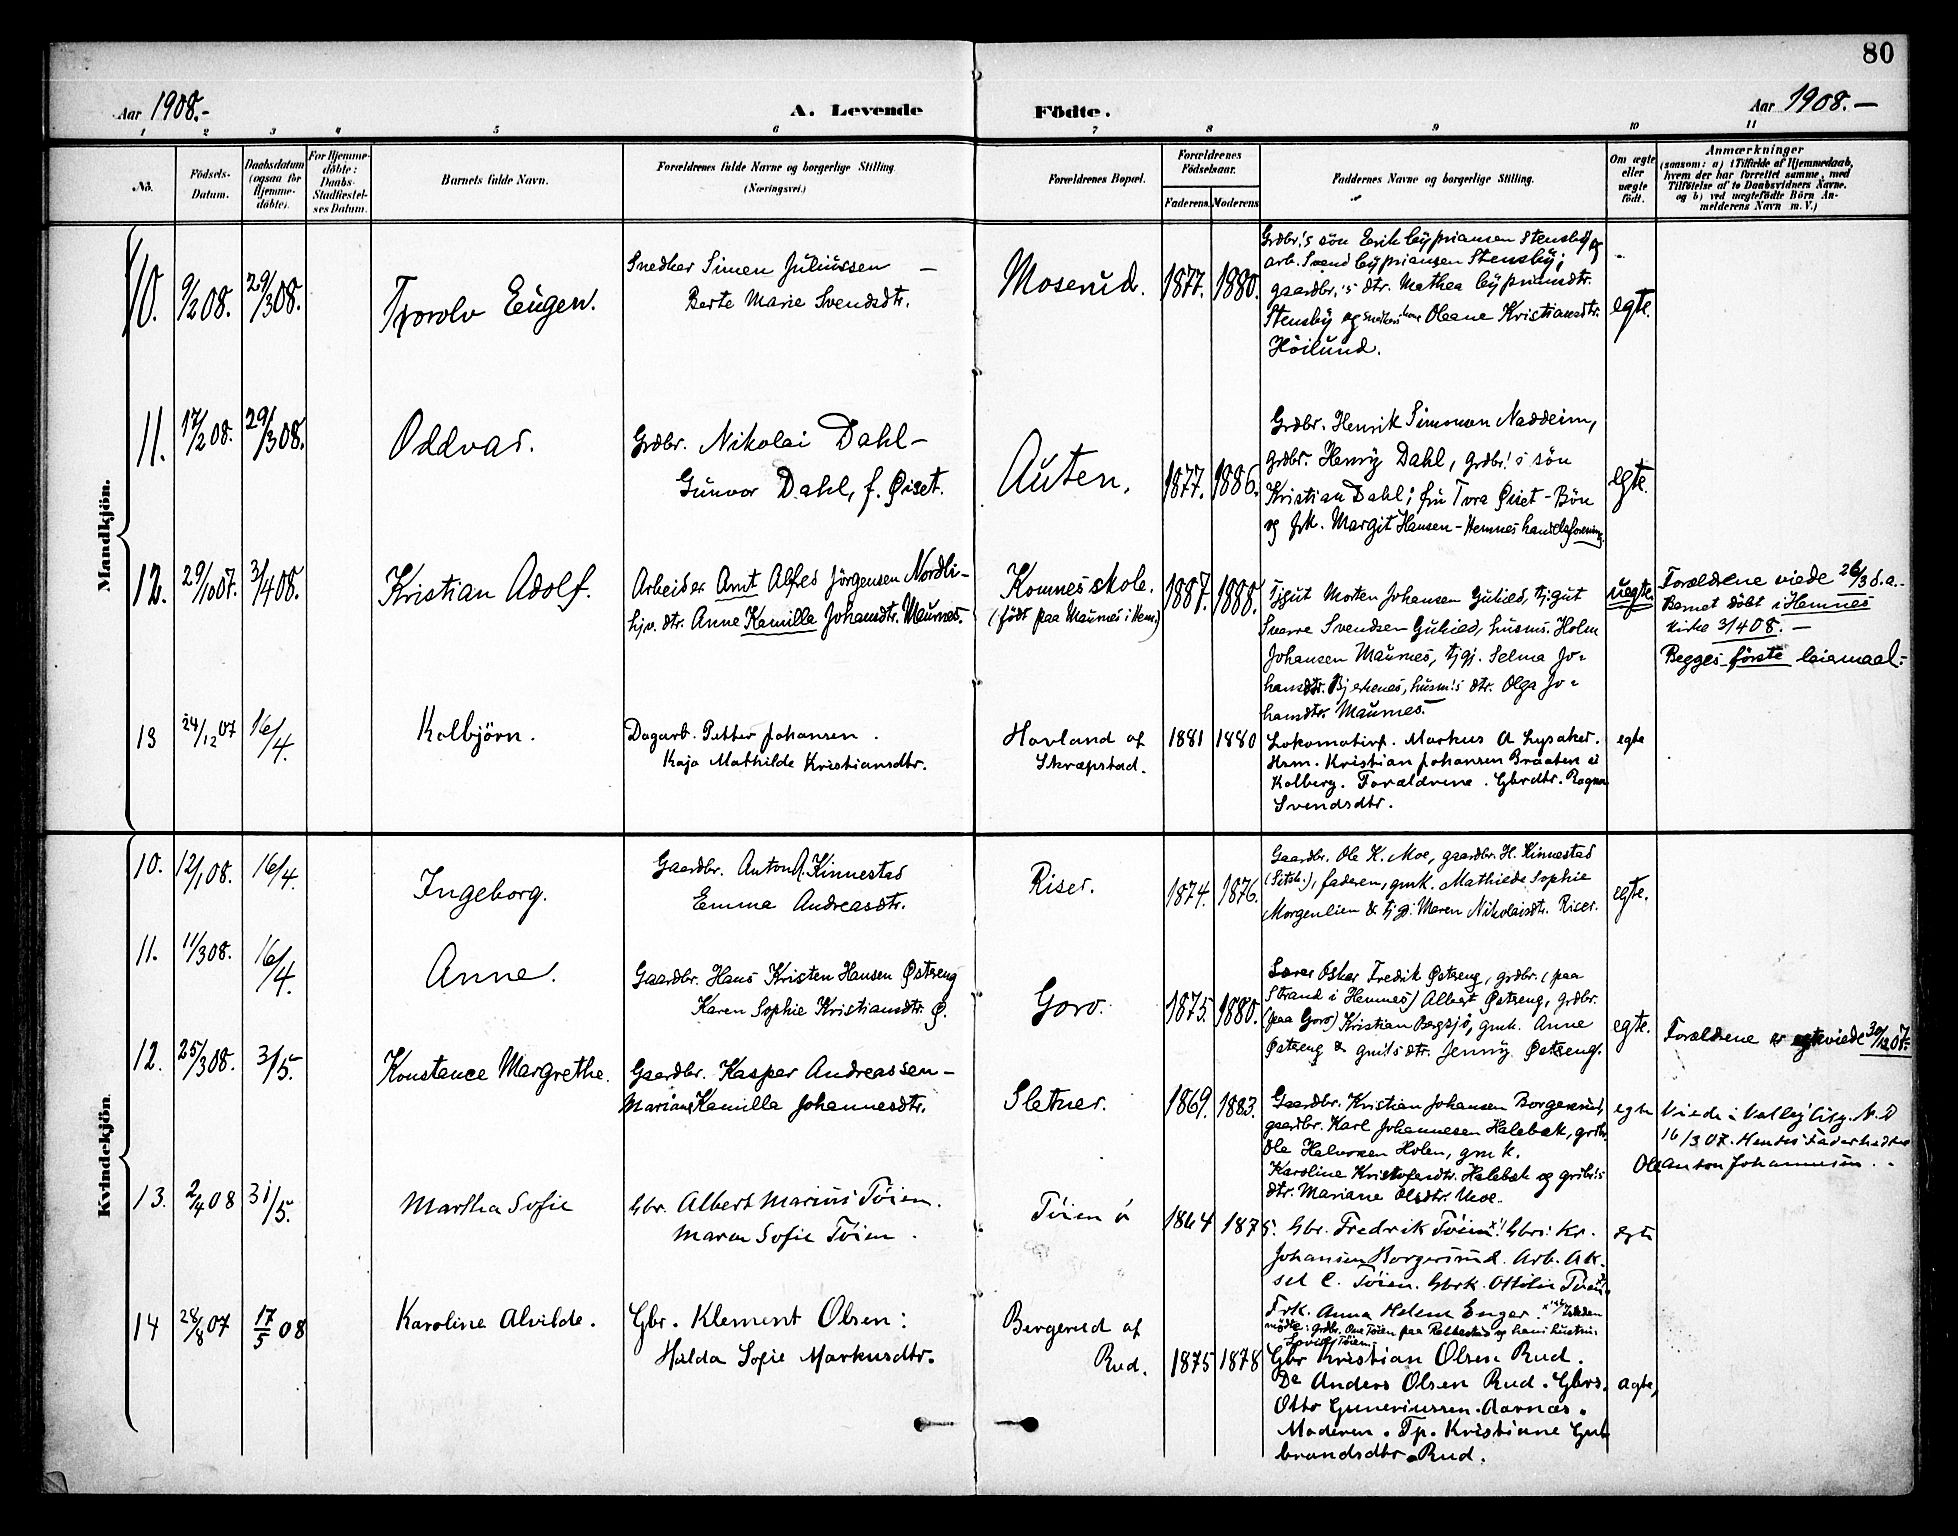 80
Aar 1908.-
A. Levende Födte.
Aar 1908.-
1 2 3 4 5 6 7 8 9 10 11
No.
Födsels-Datum.
Daabsdatum (ogsaa for Hjemme-döbte).
For Hjemme-döbte: Daabs-Stadfæstel-ses Datum.
Barnets fulde Navn.
Forældrenes fulde Navne og borgerlige Stilling
(Næringsvei.)
Forældrenes Bopæl.
Forældrenes Födselsaar.
Faderens. Moderens.
Faddernes Navne og borgerlige Stilling.
Om ægte eller uægte födt.
Anmærkninger
(saasom: a) i Tilfælde af Hjemmedaab,
hvem der har forrettet samme, med
Tilföielse af to Daabsvidners Navne.
og b) ved uægtefödte Börn An-
melderens Navn m. V.)
Mandkjön.
10. 9/2 08. 29/3 08.
Thorolv Eugen.
Snedker Simen Juliussen –
Berte Marie Svendsdtr.
Moserud.
1877. 1880.
Grdbr.'s sön Erik Cypriansen Stensby og
arb. Svend Cypriansen Stensby;
gaardbr.'s dtr. Mathea Cypriansdtr.
Stensby og Oleane Kristiansdtr.
Höilund.
egte.
11. 17/2 08. 29/3 08.
Oddvar.
Grdbr. Nikolai Dahl –
Gunvor Dahl, f. Øiset.
Auten.
1877. 1886.
Grdbr. Henrik Simonsen Naddeim,
grdbr. Henry Dahl, grdbr.'s sön
Kristian Dahl; fru Tora Øiset – Bön
og frk. Margit Hansen – Hemnes handelsforening.
egte.
12. 29/10 07. 3/4 08.
Kristian Adolf.
Arbeider Arnt Alfred Jörgensen Nordli –
hjv. dtr. Anne Kamilla Johansdtr. Maurnes.
Komnesskole.
(födt paa Maurnes i Hem.)
1887. 1888.
Tjgut Morten Johansen Gulied, tjgut
Sverre Svendsen Gulied, husms. Holm
Johansen Maurnes, tjpj. Selma Jo-
hansdtr. Bjerkenes, husm.'s dtr. Olga Jo-
hansdtr. Maurnes.
uegte.
Forældrene viede 26/3 d.a.
Barnet döbt i Hemnes
kirke 3/4 08. –
Begges förste leiermaal.-
13 24/12 07 16/4.
Kolbjörn.
Dagarb. Petter Johansen.
Kaja Mathilde Kristiansdtr.
Hovland af
Skrepstad.
1881 1880
Lokomotivf. Markus A Lysaker.
Hsm. Kristian Johansen Braaten u
Kolberg. Forældrene. Gbrdtr. Ragna
Svendsdtr.
egte
Kvindekjön.
10. 12/1 08. 16/4.
Ingeborg.
Gaardbr. Anton A. Kinnestad
Emma Andreasdtr.
Riser.
1874. 1876.
Gaardbr. Ole K. Moe, gaardbr. H. Kinnestad
faderen, gmk. Mathilde Sophie
Morgenlien & tjpj. Maren Nikolaisdtr. Riser.
egte.
11. 11/3 08. 16/4.
Anne.
Gaardbr. Hans Kristen Hansen Østreng
Karen Sophie Kristiansdtr. Ø.
Goro.
1875. 1880.
Lærer Oskar Fredrik Østreng, grdbr. (paa
Strand i Hemnes) Albert Østreng, grdbr.
(paa Goro) Kristian Bergsjö, gmk. Anne
Østreng & gm's dtr. Jenny Østreng.
egte.
Forældrene er egteviede 30/12 07.
12. 25/3 08. 3/5.
Konstance Margrethe.
Gaardbr. Kasper Andreassen –
Mariane Kamilla Johannesdtr.
Sletner.
1869. 1883.
Gaardbr. Kristian Johansen Borgersrud,
gaardbr. Karl Johannesen Halebæk, grdbr.
Ole Halvorsen Holen, gmk.
Karoline Kristofersdtr. Halebæk og grdbr.'s
dtr. Mariane Olsdtr. Moe.
egte
Viede i Valley City. N. D
16/3 07. Hendes Fader hedder
Ole Anton Johannesen.
13. 2/4 08 31/5.
Martha Sofie
Gbr. Albert Marius Töien.
Maren Sofie Töien.
Töien ö
1864 1875.
Gbr. Fredrik Töien x). Gbrs: Kr.
Johansen Borgersrud. Arb. Ak-
sel C. Töien. Gbrk. Ottilie Töien.
Frk. Anna Helene Enger. x) istedenn
mödte: Grdbr. Ole Töien paa Rakkestad og hans hustru
Lovise Töien.
egte
14 28/8 07 17/5 08
Karoline Alvilde.
Gbr. Klement Olsen:
Hilda Sofie Markusdtr.
Bergerud af
Rud.
1875 1878
Gbr Kristian Olsen Rud.
Do Anders Olsen Rud. Gbrs.
Otto Guneriussen. Aarnæs.
Moderen. Tp. Kristiane Gul-
brandsdtr. Rud.
ægte,